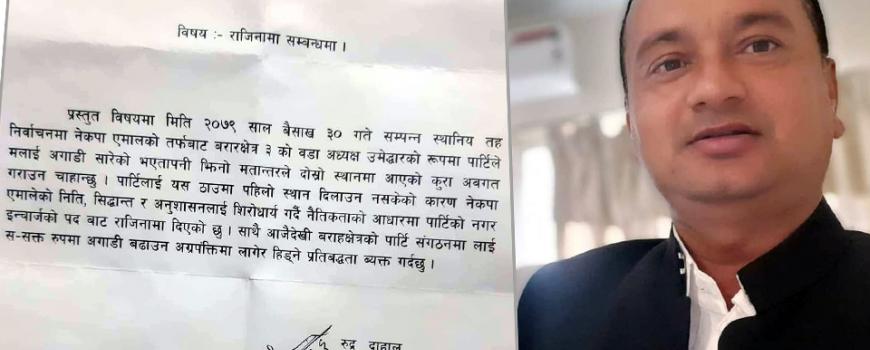 विषय :- राजिनामा सम्बन्धमा ।
प्रस्तुत विषयमा मिति २०७९ साल बैसाख ३० गते सम्पन्न स्थानिय तह
निर्वाचनमा नेकपा एमालको तर्फबाट बरारक्षेत्र ३ को वडा अध्यक्ष उमेद्धारको रूपमा पार्टिले
मलाई अगाडी सारेको भएतापनी झिनो मतान्तरले दोस्रो स्थानमा आएको कुरा अवगत
गराउन चाहान्छु । पार्टिलाई यस ठाउमा पहिलो स्थान दिलाउन नसकेको कारण नेकपा
एमालेको निति, सिद्धान्त र अनुशासनलाई शिरोधार्य गर्दै नैतिकताको आधारमा पार्टिको नगर
इन्चार्जको पद बाट राजिनामा दिएको छु । साथै आजैदेखी बराहक्षेत्रको पार्टि संगठनमा लाई
स-सक्त रुपमा अगाडी बढाउन अग्रपंक्तिमा लागेर हिड्ने प्रतिबद्धता ब्यक्त गर्दछु ।
रुद्र दाहाल